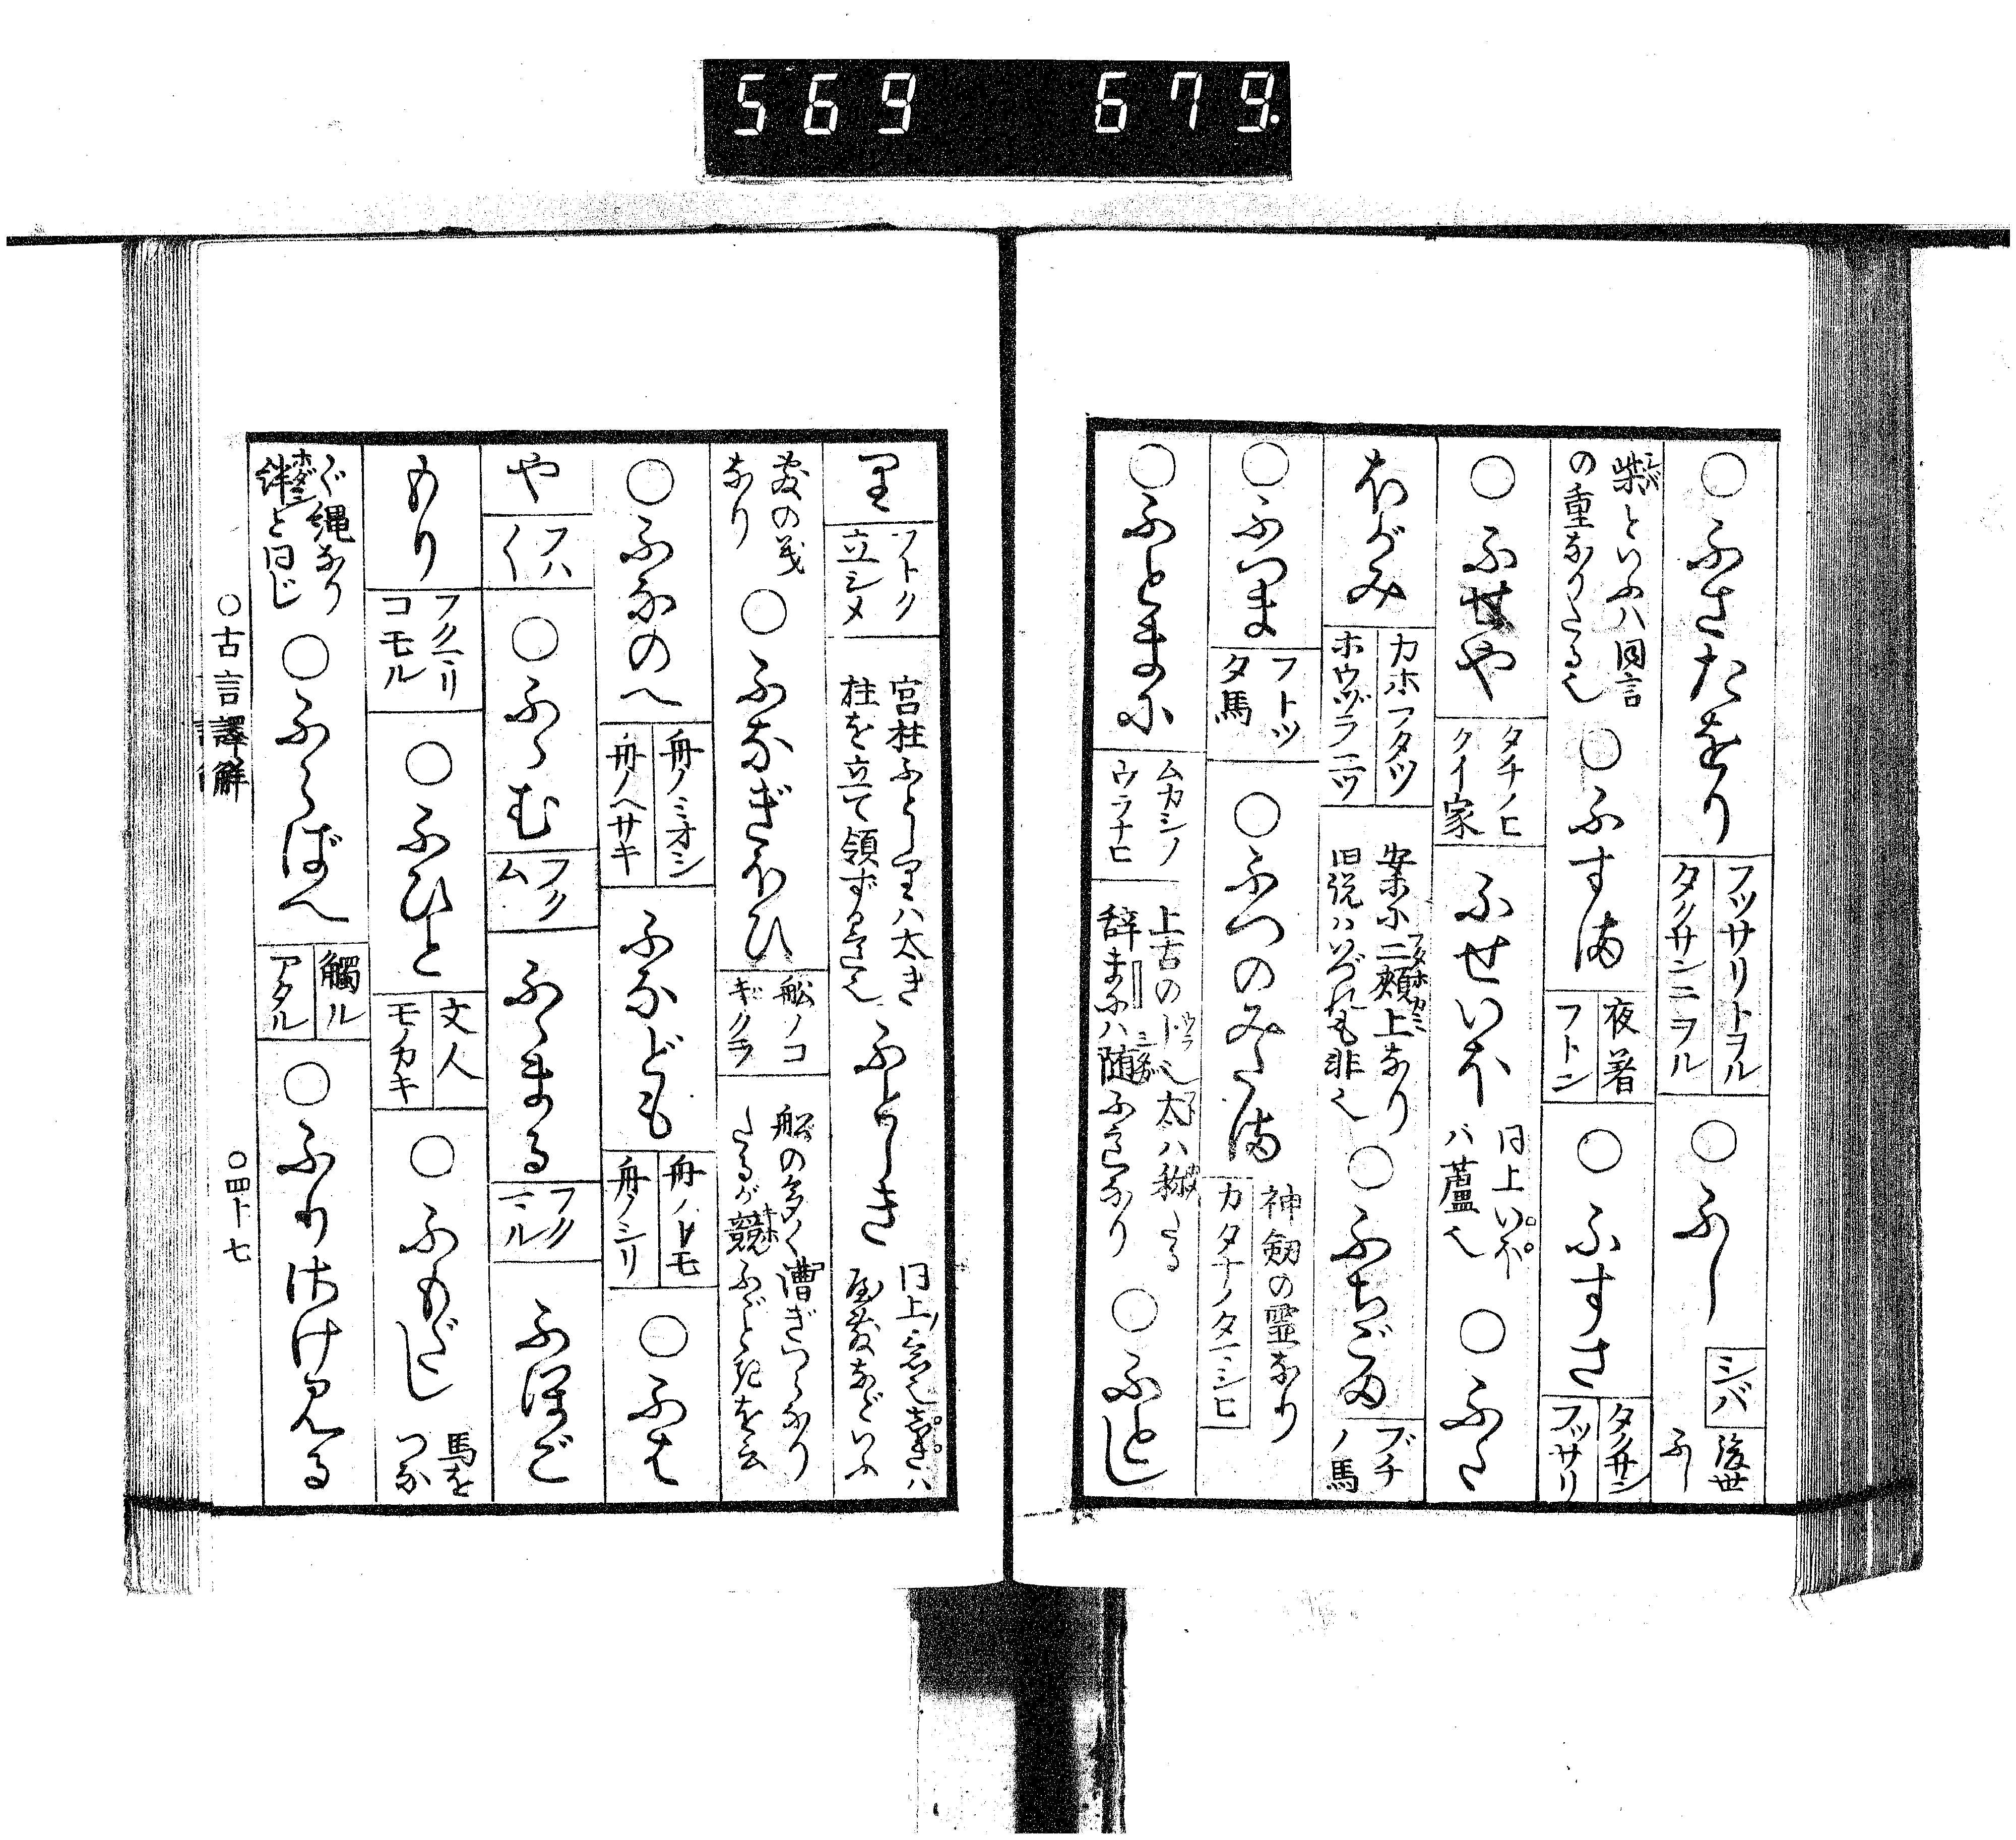 569 679.
○ふさたをり フッサリトヲル タクサンニヲル ○ふし シバ 後世ふし
柴といふハ同言の重なりたる也 ○ふすま 夜着 フトン ○ふすさ タクサン フッサリ
○ふせや タチノヒクイ家 ふせいほ 同上いほハ蘆也 ○ふた
ほがみ カホフタツ ホウヅラ二ツ 案に二頬上なり旧説ハいづれも非也 ○ふちごま ブチノ馬
○ふつま フトツタ馬 ○ふつのみたま 神劔の霊なり カタナノタマシヒ
○ふとまに ムカシノウラナヒ 上古の卜也太ハ称たる辞まにハ随に意なり ○ふとし
里 フトク立シメ 宮柱ふとし里ハ太き柱を立て領ずる意也 ふとしき 同上ノ意也しきハ
なり ○ふなぎほひ 舩ノコギクラ 舩の多く漕ぎつらなりたるが競ふごときを云
○ふなのへ 舟ノミオシ 舟ノヘサキ ふなども 舟ノトモ 舟ノシリ ○ふは
や フハ〱 ○ふゝむ フクム ふゝまる フクマル ふほご
もり フクミリコモル ○ふひと 文人 モノカキ ○ふもだし 馬をつな
ぐ縄なり絆と同じ ○ふらばへ 觸ル アタル ○ふりさけ見る
○古言譯解 ○四十七